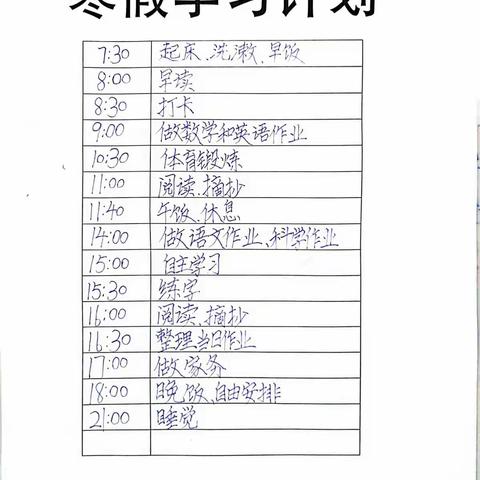 寒假学习计划
7:30 起床、洗漱、早饭
8:00 早读
8:30 打卡
9:00 做数学和英语作业
10:30 体育锻炼
11:00 阅读、摘抄
11:40 午饭、休息
14:00 做语文作业、科学作业
15:00 自主学习
15:30 练字
16:00 阅读、摘抄
16:30 整理当日作业
17:00 做家务
18:00 晚饭、自由安排
21:00 睡觉